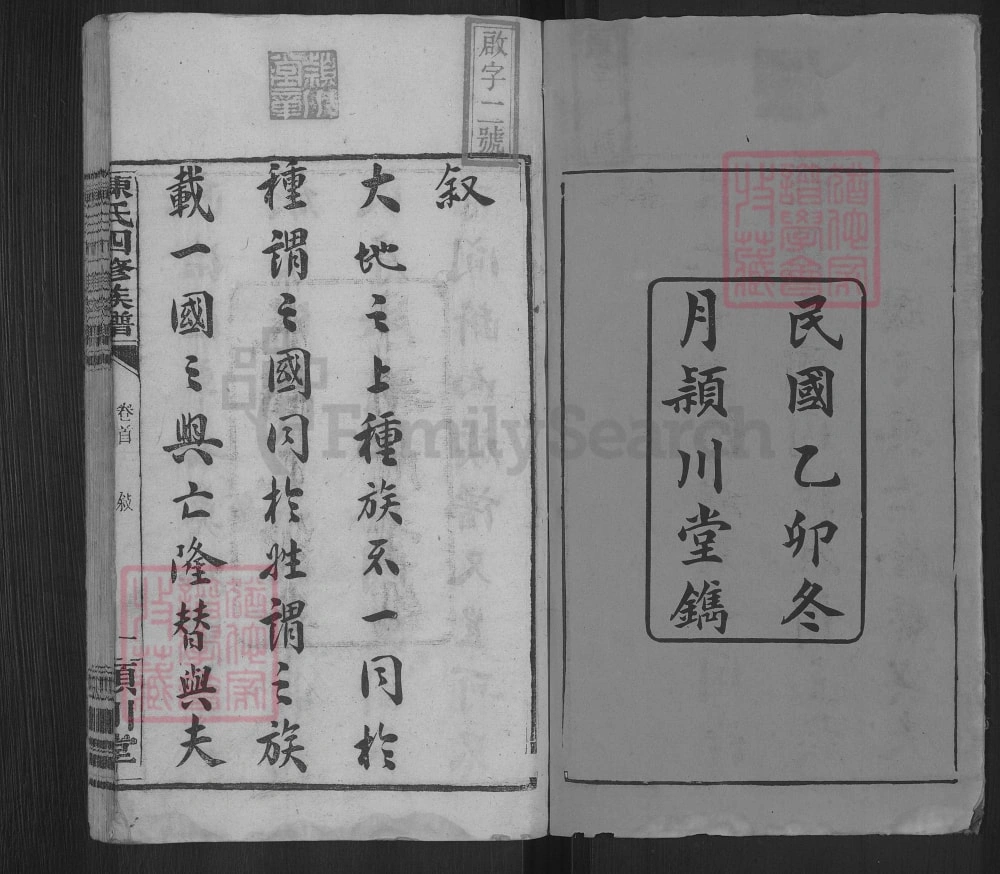 民國乙卯冬
月潁川堂鐫
啟字二號
叙
大地之上種族不一同於
種謂之國同於姓謂之族
載一國之興亡隆替與夫
陳氏四修族譜
卷首
敍
一
潁川堂
FamilySearch